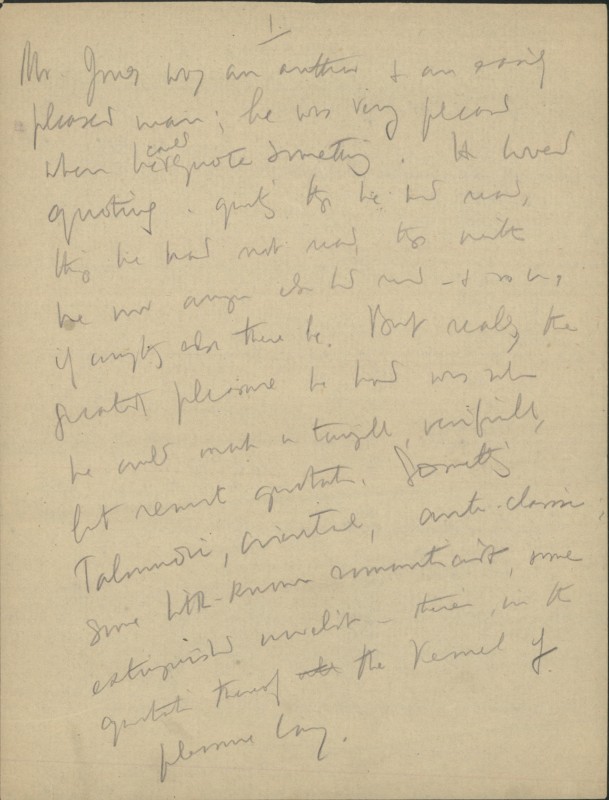 1.
Mr. Jones was an author & an easily
pleased man; he was very pleased
when he could quote something. He loved
quoting - quoting things he had read,
things he had not read, things neither
he nor anyone else had read - & so on,
if anything else there be. But really the
greatest pleasure he had was when
he could make a
but remote quotation. Something
Talmudic, oriental, ante-classic;
some little-known romanticist, some
extinguished novelist - therein, in the
quotation thereof the kernel of
pleasure lay.